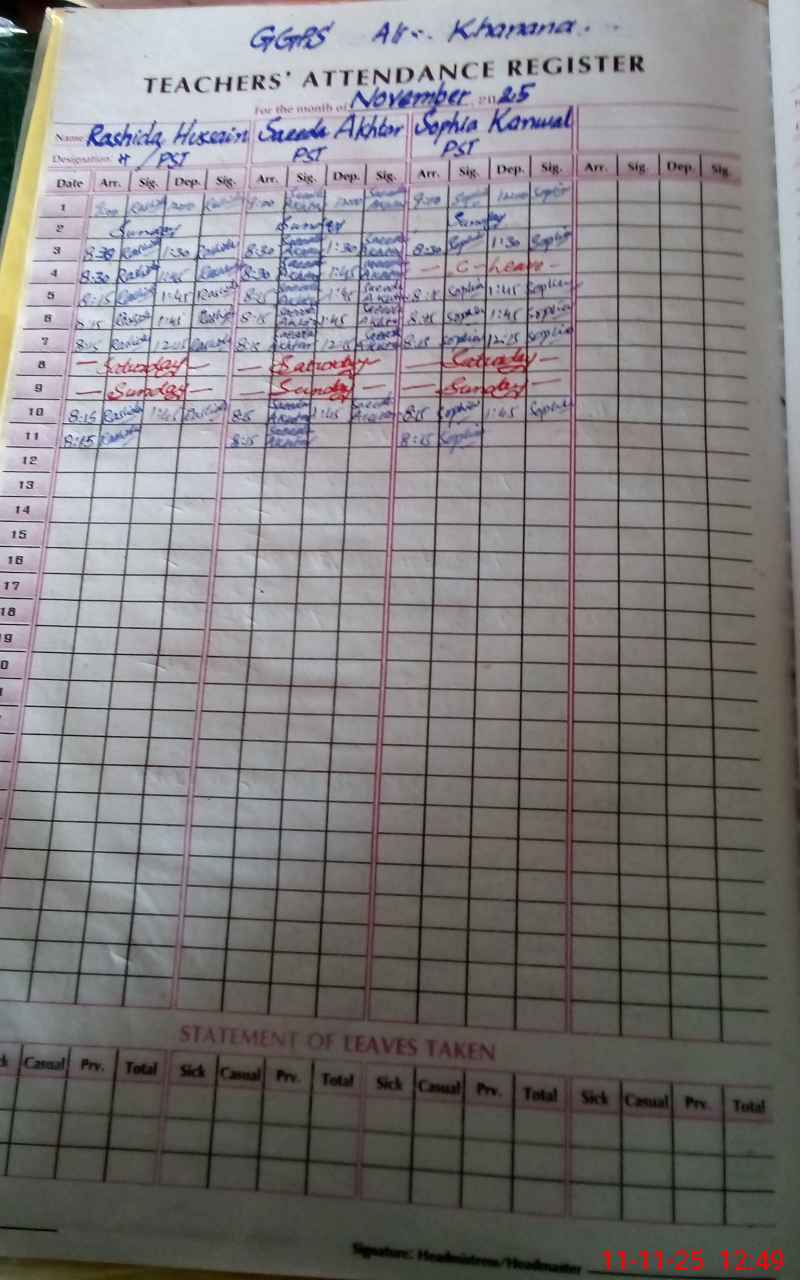 GGPS Ali Khanana.
TEACHERS' ATTENDANCE REGISTER
For the month of November 2025
Name Rashida Hussain Saeeda Akhtar Sophia Kanwal
Designation. H /PST PST PST
Date Arr. Sig. Dep. Sig. Arr. Sig. Dep. Sig. Arr. Sig. Dep. Sig. Arr. Sig. Dep. Sig.
1 9:00 Rashida 12:00 Rashida 9:00 Saeeda Akhtar 12:00 Saeeda Akhtar 9:00 Sophia 12:00 Sophia
2 Sunday Sunday Sunday
3 8:30 Rashida 1:30 Rashida 8:30 Saeeda Akhtar 1:30 Saeeda Akhtar 8:30 Sophia 1:30 Sophia
4 8:30 Rashida 1:45 Rashida 8:30 Saeeda Akhtar 1:45 Saeeda Akhtar — C-Leave —
5 8:15 Rashida 1:45 Rashida 8:15 Saeeda Akhtar 1:45 Saeeda Akhtar 8:15 Sophia 1:45 Sophia
6 8:15 Rashida 1:45 Rashida 8:15 Saeeda Akhtar 1:45 Saeeda Akhtar 8:15 Sophia 1:45 Sophia
7 8:15 Rashida 12:15 Rashida 8:15 Saeeda Akhtar 12:15 Saeeda Akhtar 8:15 Sophia 12:15 Sophia
8 — Saturday — — Saturday — Saturday —
9 — Sunday — — Sunday — — Sunday —
10 8:15 Rashida 1:45 Rashida 8:15 Saeeda Akhtar 1:45 Saeeda Akhtar 8:15 Sophia 1:45 Sophia
11 8:15 Rashida 8:15 Saeeda Akhtar 8:15 Sophia
12
13
14
15
16
17
18
STATEMENT OF LEAVES TAKEN
Casual Prv. Total Sick Casual Prv. Total Sick Casual Prv. Total Sick Casual Prv. Total
Signature: Headmistress/Headmaster
11-11-25 12:49